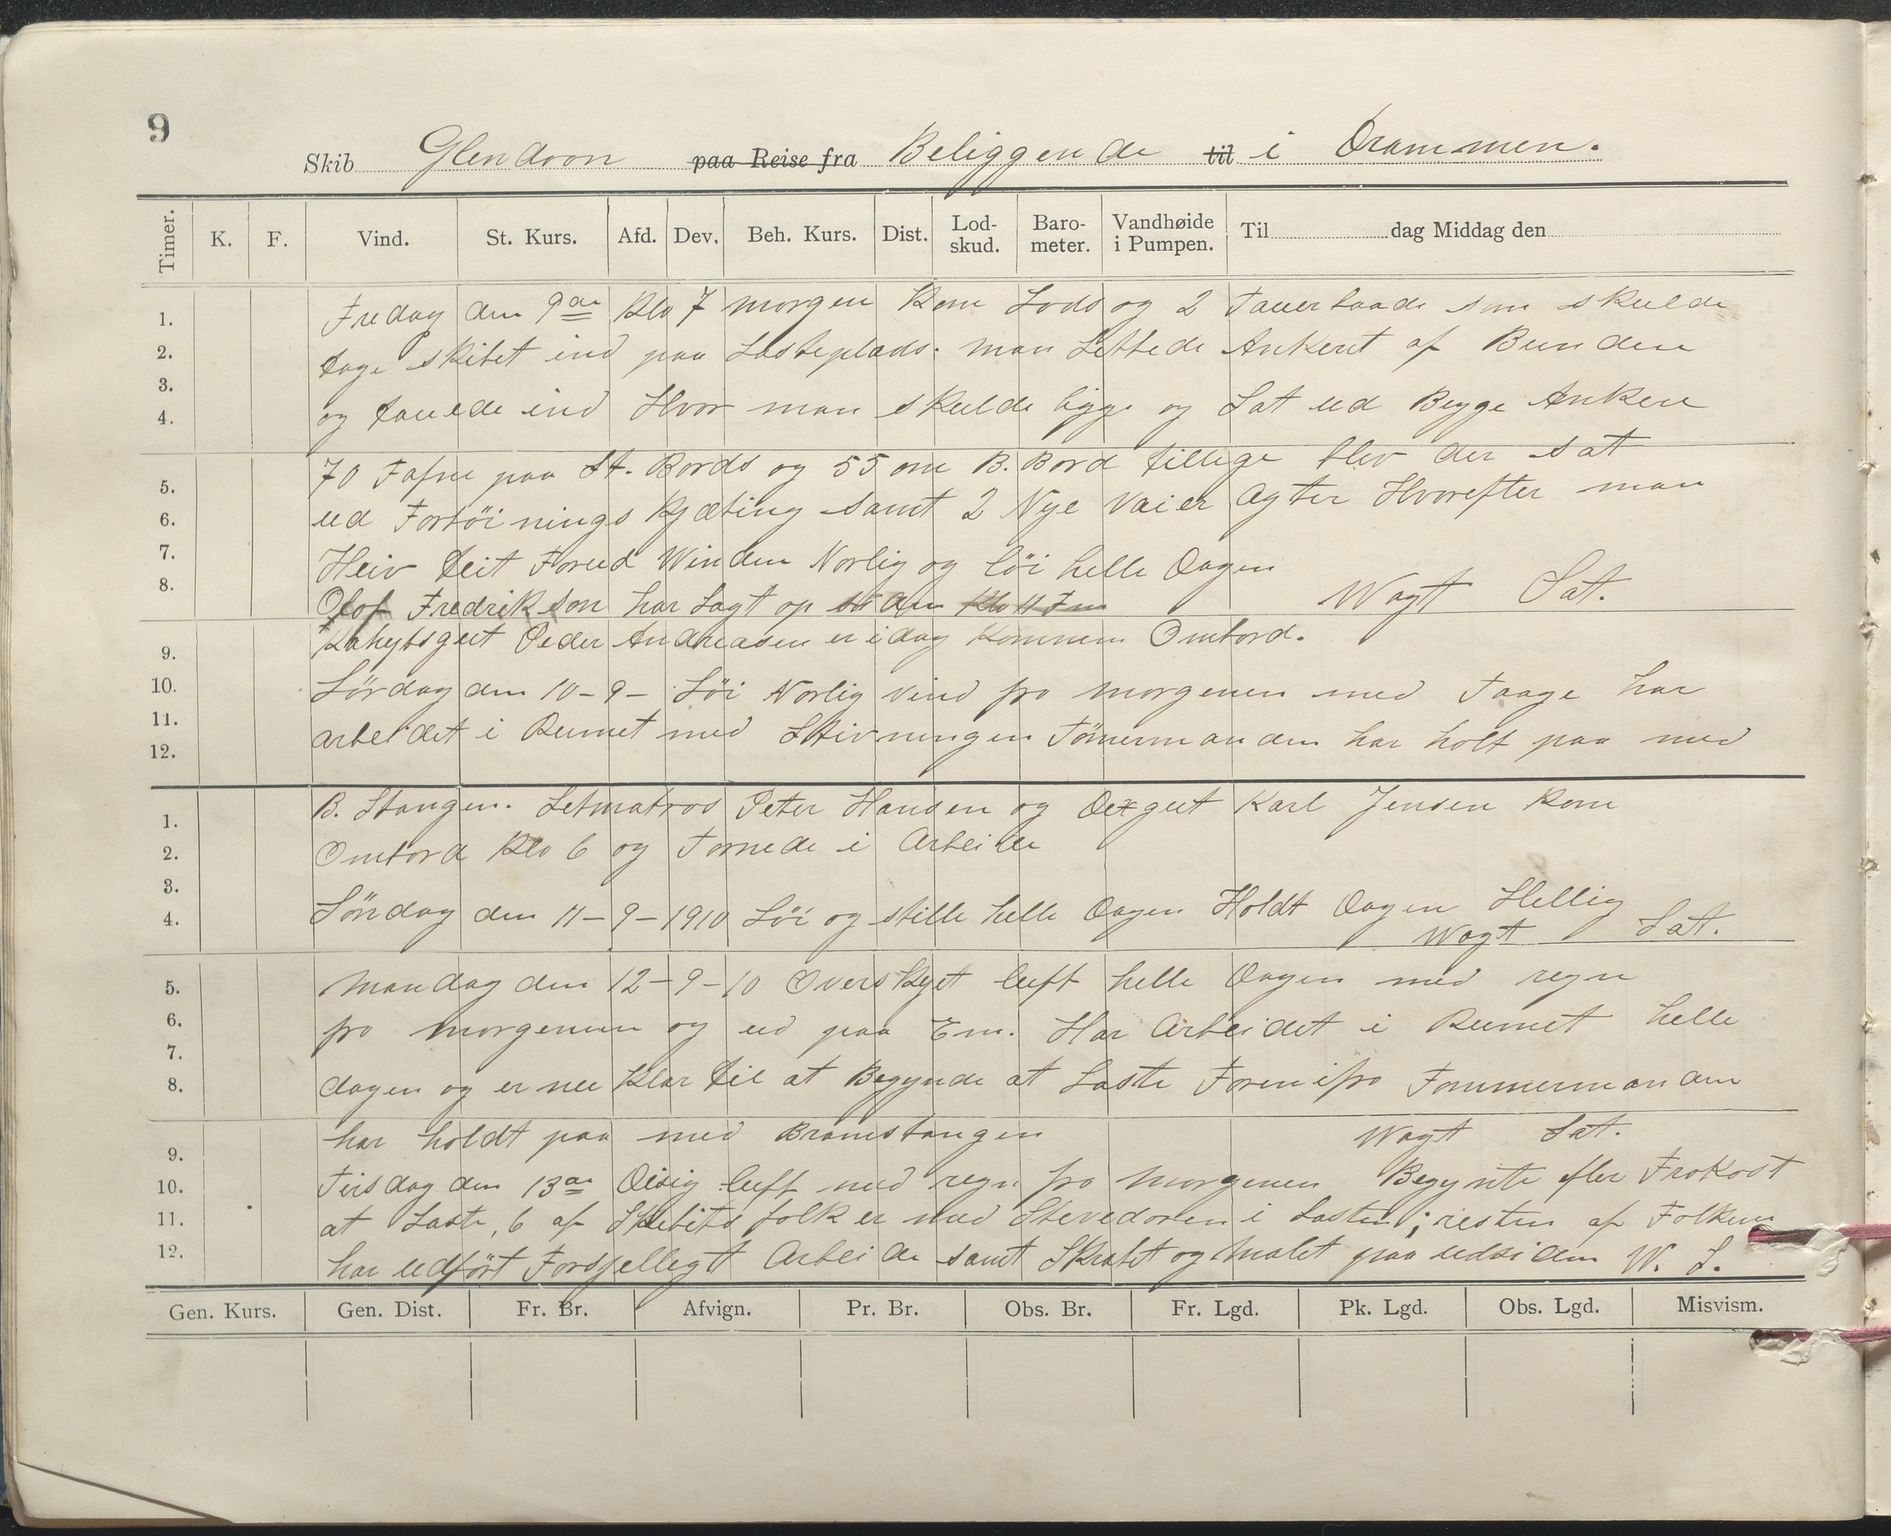 9
Skib Glendoon paa Reise fra Beliggende til i Drammen.
Timer. K. F. Vind. St. Kurs. Afd. Dev. Beh. Kurs. Dist. Lod-skud. Baro-meter. Vandhøide i Pumpen. Til dag Middag den
1. Fredag den 9de Klo 7 morgen Kom Lods og 2 Tauerbaade som skulde
2. tage skibet ind paa Lasteplads. man Lettede Ankeret af Bunden
3.
4. og tauede ind Hvor man skulde ligge og Sat ud Begge Ankere
70 Fafne paa St. Bords og 55 om B. Bord tillige blev der sat
5.
6. ud Fortöinings Kjæting samt 2 Nye Vaier Agter Hvorefter man
7. Heiv Teit Forud Winden Norlig og löi helle Dagen
8. Wagt Sat.
Olof Fredrikson har Lagt op den Klo 11 Fm
Kahytsgut Peder Andreasen er idag Kommen Ombord.
9.
10. Lördag den 10-9- Löi Norlig vind fra morgenen med Taage har
11. arbeidet i Rumet med Stivningen Tömermanden har holt paa med
12.
B. Stangen. Letmatros Peter Hansen og Dexgut Karl Jensen Kom
1.
2. Ombord Klo 6 og Tornede i Arbeide
3.
4. Söndag den 11-9-1910 Löi og stille helle Dagen Holdt Dagen Hellig
Wagt Sat.
5. Mandag den 12-9-10 Overskyet luft helle Dagen med regn
6. fra morgenen og ud paa Em. Har Arbeidet i Rumet helle
7.
8. dagen og er nu Klar til at Begynde at Laste Forenifra Tommermanden
har holdt paa med Bramstangen Wagt Sat.
9.
10. Tirsdag den 13de Disig luft med regn fra morgenen Begynte efter Frokost
11. at Laste, 6 af Skibets folk er med Stevedoren i Lasten; resten af Folkene
12. har udfört Forsjelligt Arbeide samt Skrabt og Malet paa udsiden W. S.
Gen. Kurs. Gen. Dist. Fr. Br. Afvign. Pr. Br. Obs. Br. Fr. Lgd. Pk. Lgd. Obs. Lgd. Misvism.